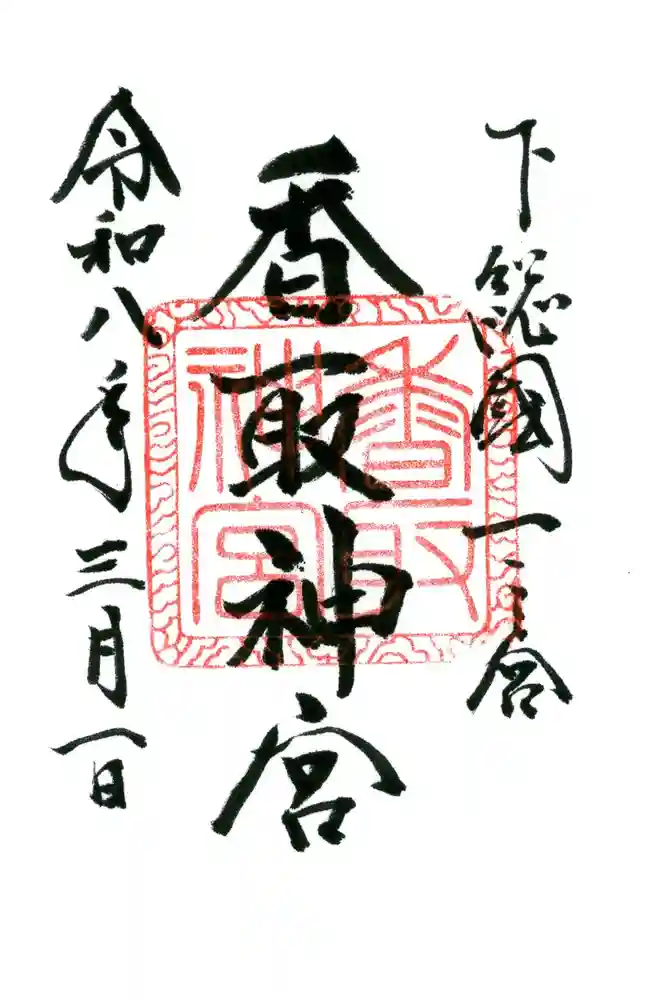 下総國一之宮
香取神宮
香取神宮
令和八年三月一日